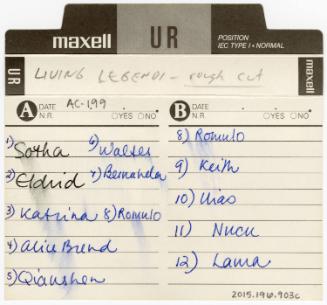 maxell
UR
POSITION
IEC TYPE I • NORMAL
UR
maxell
LIVING LEGENDS - rough cut
A DATE AC-199
N.R. ○YES ○NO
B DATE
N.R. ○YES ○NO
1) Sotha
2) Eldrid
3) Katrina
4) Alice Brend
5) Qianshen
6) Walter
7) Bernarda
8) Romulo
8) Romulo
9) Keith
10) Uiao
11) Nucu
12) Lama
2015.196.903c